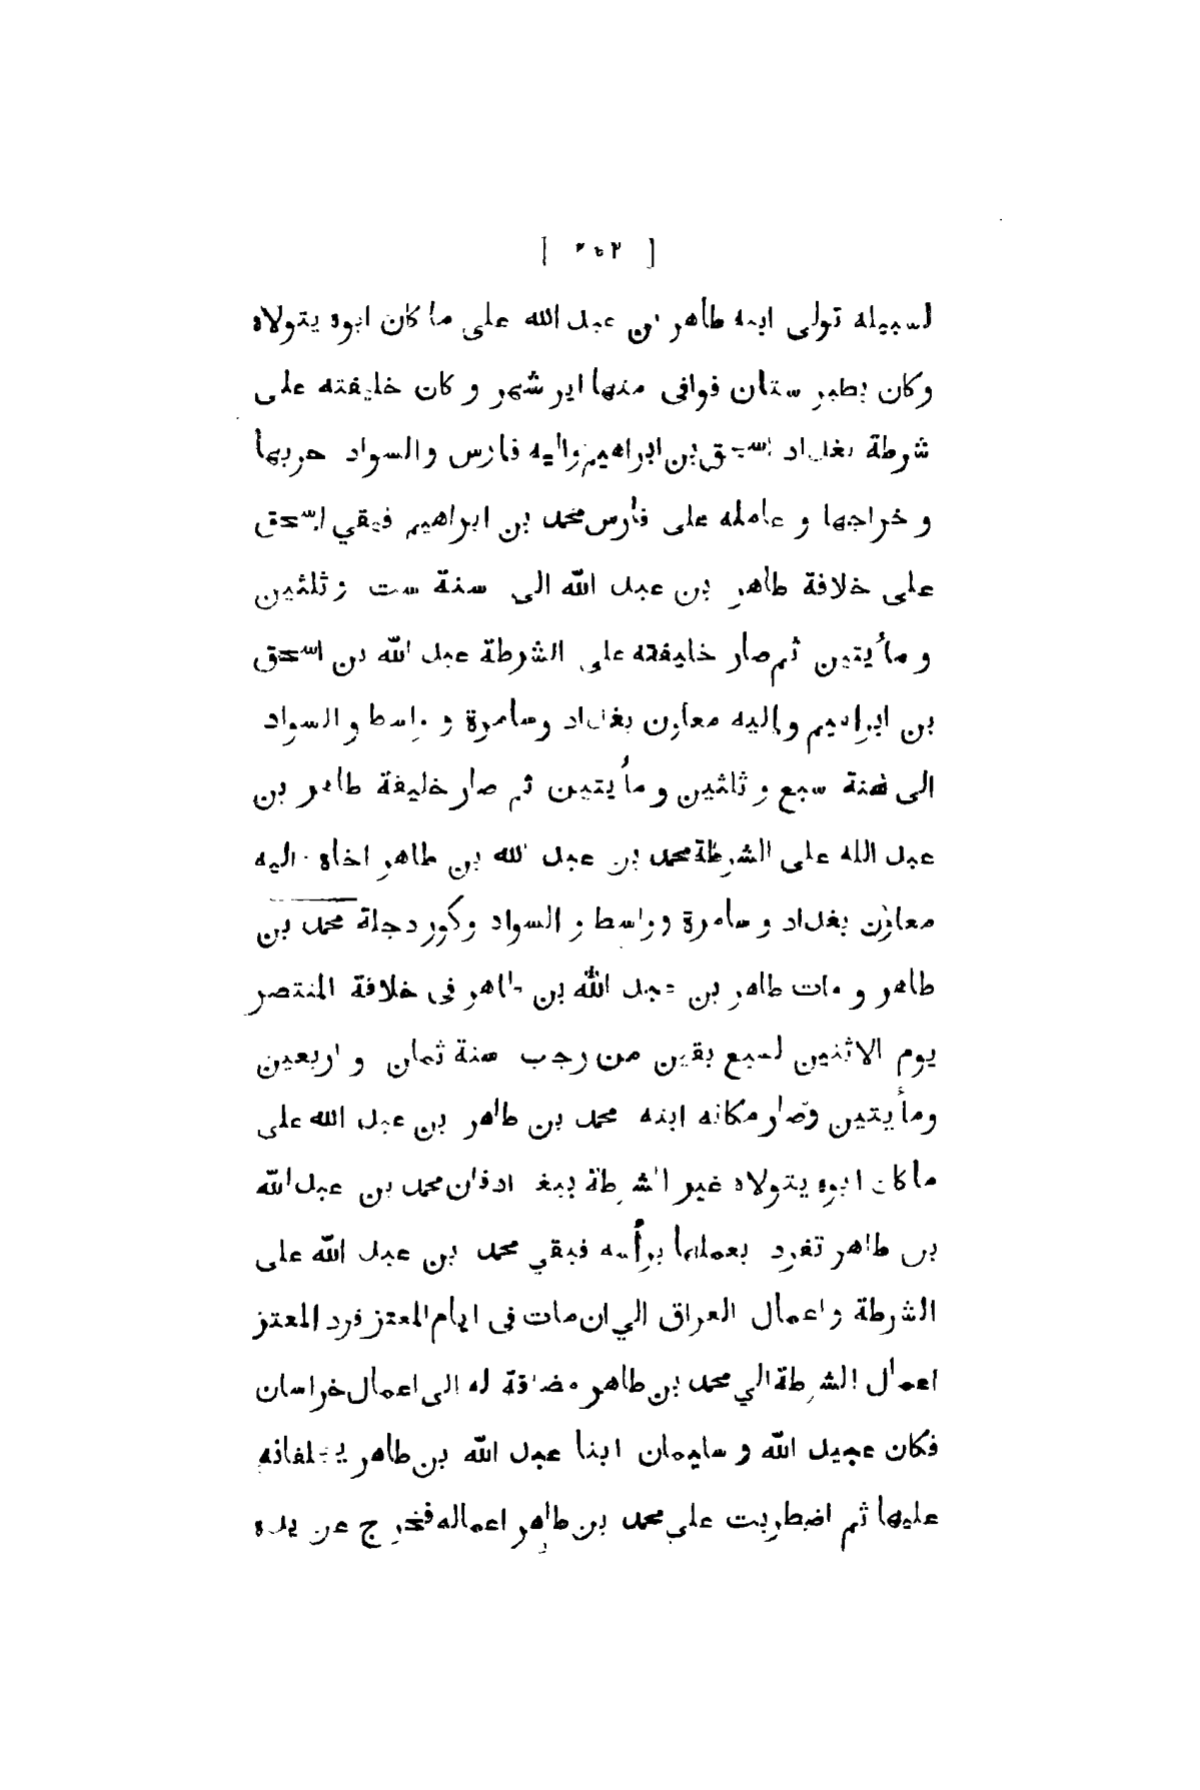 لسبيله تولى ابنه طاهر بن عبد الله على ما كان ابوه يتولاه
وكان بطبر ستان فوافى منها ابر شهر و كان خليفته على
شرطة بغداد اسحق بن ابراهيم واليه فارس والسواد حربها
و خراجها و عامله على فارس محمد بن ابراهيم فبقي اسحق
على خلافة طاهر بن عبد الله الى سنة ست و ثلثين
و مأيتين ثم صار خليفته على الشرطة عبد الله بن اسحق
بن ابراهيم واليه معاون بغداد وسامرة و واسط و السواد
الى سنة سبع و ثلثين و مأيتين ثم صار خليفة طاهر بن
عبد الله على الشرطة محمد بن عبد الله بن طاهر اخاه اليه
معاون بغداد و سامرة وواسط و السواد وكور دجلة محمد بن
طاهر و مات طاهر بن عبد الله بن طاهر فى خلافة المنتصر
يوم الاثنين لسبع بقين من رجب سنة ثمان و اربعين
ومأيتين وصار مكانه ابنه محمد بن طاهر بن عبد الله على
ماكان ابوه يتولاه غير الشرطة ببغدادفان محمد بن عبد الله
بن طاهر تفرد بعملها برأسه فبقي محمد بن عبد الله على
الشرطة واعمال العراق الي ان مات فى ايام المعتز فرد المعتز
اعمال الشرطة الي محمد بن طاهر مضافة له الى اعمال خراسان
فكان عبيد الله و سليمان ابنا عبد الله بن طاهر يخلفانه
عليها ثم اضطربت على محمد بن طاهر اعماله فخرج عن يده